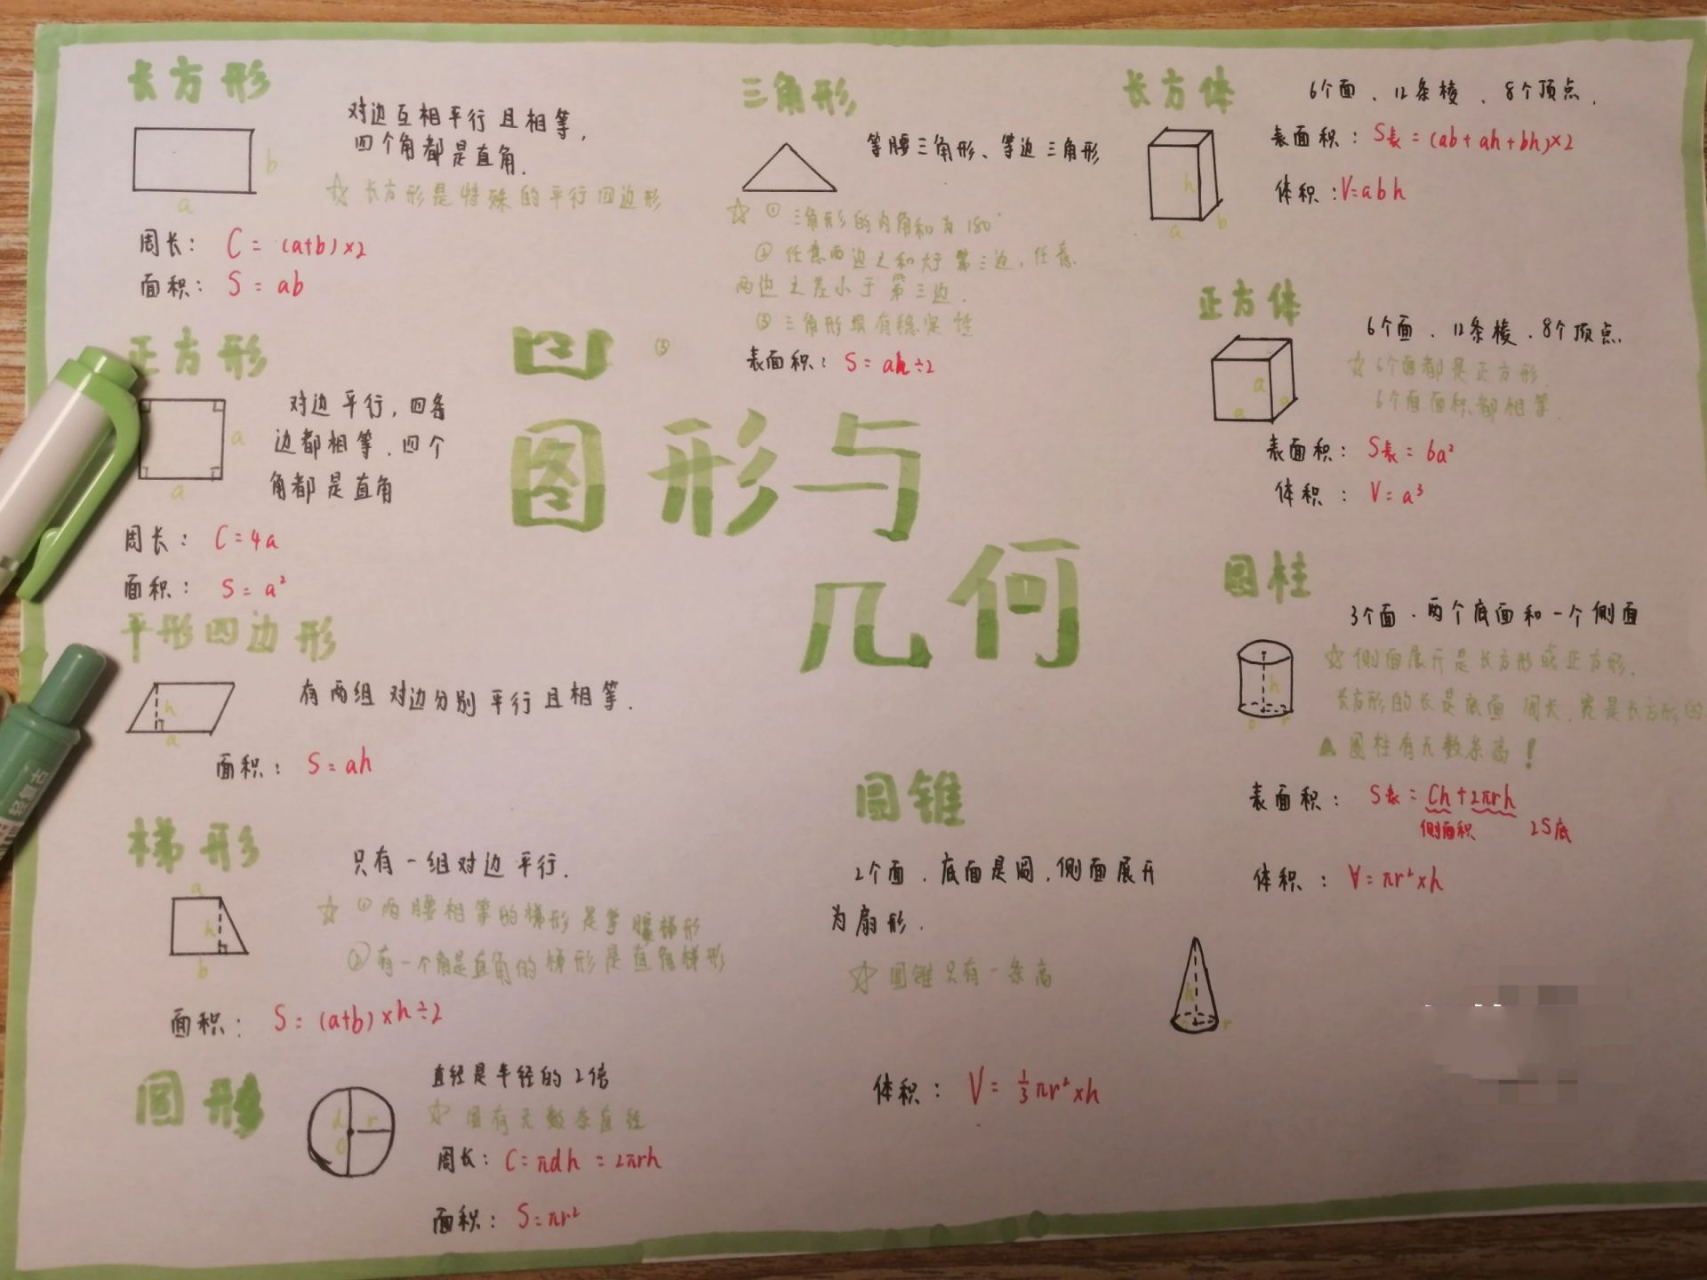 长方形
对边互相平行且相等,
四个角都是直角.
b
a
☆ 长方形是特殊的平行四边形
周长: C = (a+b)×2
面积: S = ab
正方形
对边平行, 四条
边都相等. 四个
角都是直角
a
a
周长: C=4a
面积: S = a²
平行四边形
h
a
有两组对边分别平行且相等.
面积: S = ah
梯形
a
h
b
只有一组对边平行.
☆ ①两腰相等的梯形是等腰梯形
②有一个角是直角的梯形是直角梯形
面积: S = (a+b)×h÷2
圆形
d
r
O
直径是半径的2倍
☆ 圆有无数条直径
周长: C=πdh =2πrh
面积: S=πr²
三角形
等腰三角形、等边三角形
☆ ① 三角形的内角和为180°
② 任意两边之和大于第三边, 任意
两边之差小于第三边.
③ 三角形具有稳定性
表面积: S = ah÷2
图形与
几何
圆锥
2个面. 底面是圆. 侧面展开
为扇形.
☆ 圆锥只有一条高
h
r
体积: V= 1/3 πr²×h
长方体
6个面、12条棱、8个顶点.
h
b
a
表面积: S表=(ab+ah+bh)×2
体积:V=abh
正方体
6个面、12条棱.8个顶点
☆ 6个面都是正方形.
6个面面积都相等.
a
a
a
表面积: S表=6a²
体积: V=a³
圆柱
3个面.两个底面和一个侧面
☆ 侧面展开是长方形或正方形.
长方形的长是底面周长.宽是长方形的
▲ 圆柱有无数条高!
h
r
表面积: S表=Ch+2πrh
侧面积 2S底
体积: V=πr²×h